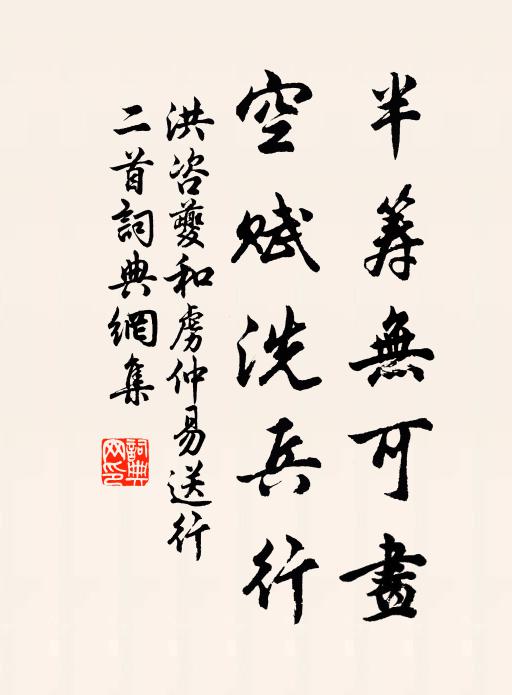 半筹無可畫
空赋洗兵行
洪咨夔和虜仲易送行
二首詞典網集
詞典網印